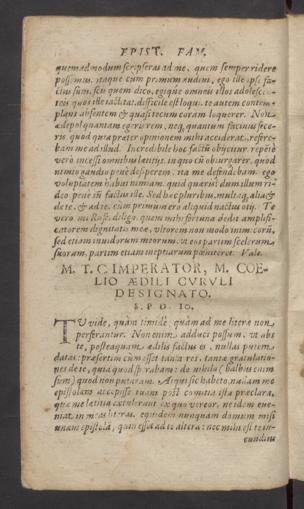 EPIST. FAM.
quemadmodum scripseras ad me, quem semper ridere
possemus. itaque cum primum audiui, ego ille ipse fa-
ctus sum. scis quem dico. egique omnes illos adolesce-
teis quos ille iactitat. difficile est loqui. te autem contem-
plans absentem & quasi tecum coram loquerer. Non
ædepol quantam egerim rem, neq. quantum facinus fece-
ris quod quia præter opinionem mihi acciderat, refere-
bam me ad illud. Incredibile hoc factu obijcitur. repete
vero incessi omnibus lætitijs. in quo cū obiurgarer, quod
nimio gaudio pene desiperem. ita me defendebam. ego
voluptatem habui nimiam. quid quæris? dum illum ri-
deo pene sū factus ille. Sed hæc pluribus, multaq. alia &
de te, & ad te. cum primum ero aliquid nactus otij. Te
vero mi Rufe diligo. quem mihi fortuna dedit amplifi-
catorem dignitatis meæ, vltorem non modo inimicorū,
sed etiam inuidorum meorum. vt eos partim scelerum
suorum, partim etiam ineptiarum pœniteret. Vale.
M. T. C. IMPERATOR, M. COE-
LIO ÆDILI CVRVLI
DESIGNATO.
S. P. D. 10.
TV vide, quàm timide. quàm ad me literæ non
perferantur. Non enim adduci possum, vt abs
te, posteaquam ædilis factus es, nullas putem
datas: præsertim cùm esset tanta res, tanta gratulatio-
nes de te, quia quod sperabam: de nihilo (balbus enim
sum) quod non putaram. Atqui sic habeto, nullam me
epistolam accepisse tuam post comitia ista præclara,
quæ me lætitia extulerunt ex quo vereor, ne idem eue-
niat in meas literas. equidem nunquam domum misi
vnam epistolā, quin esset ad te altera: nec mihi est te iu-
cundius